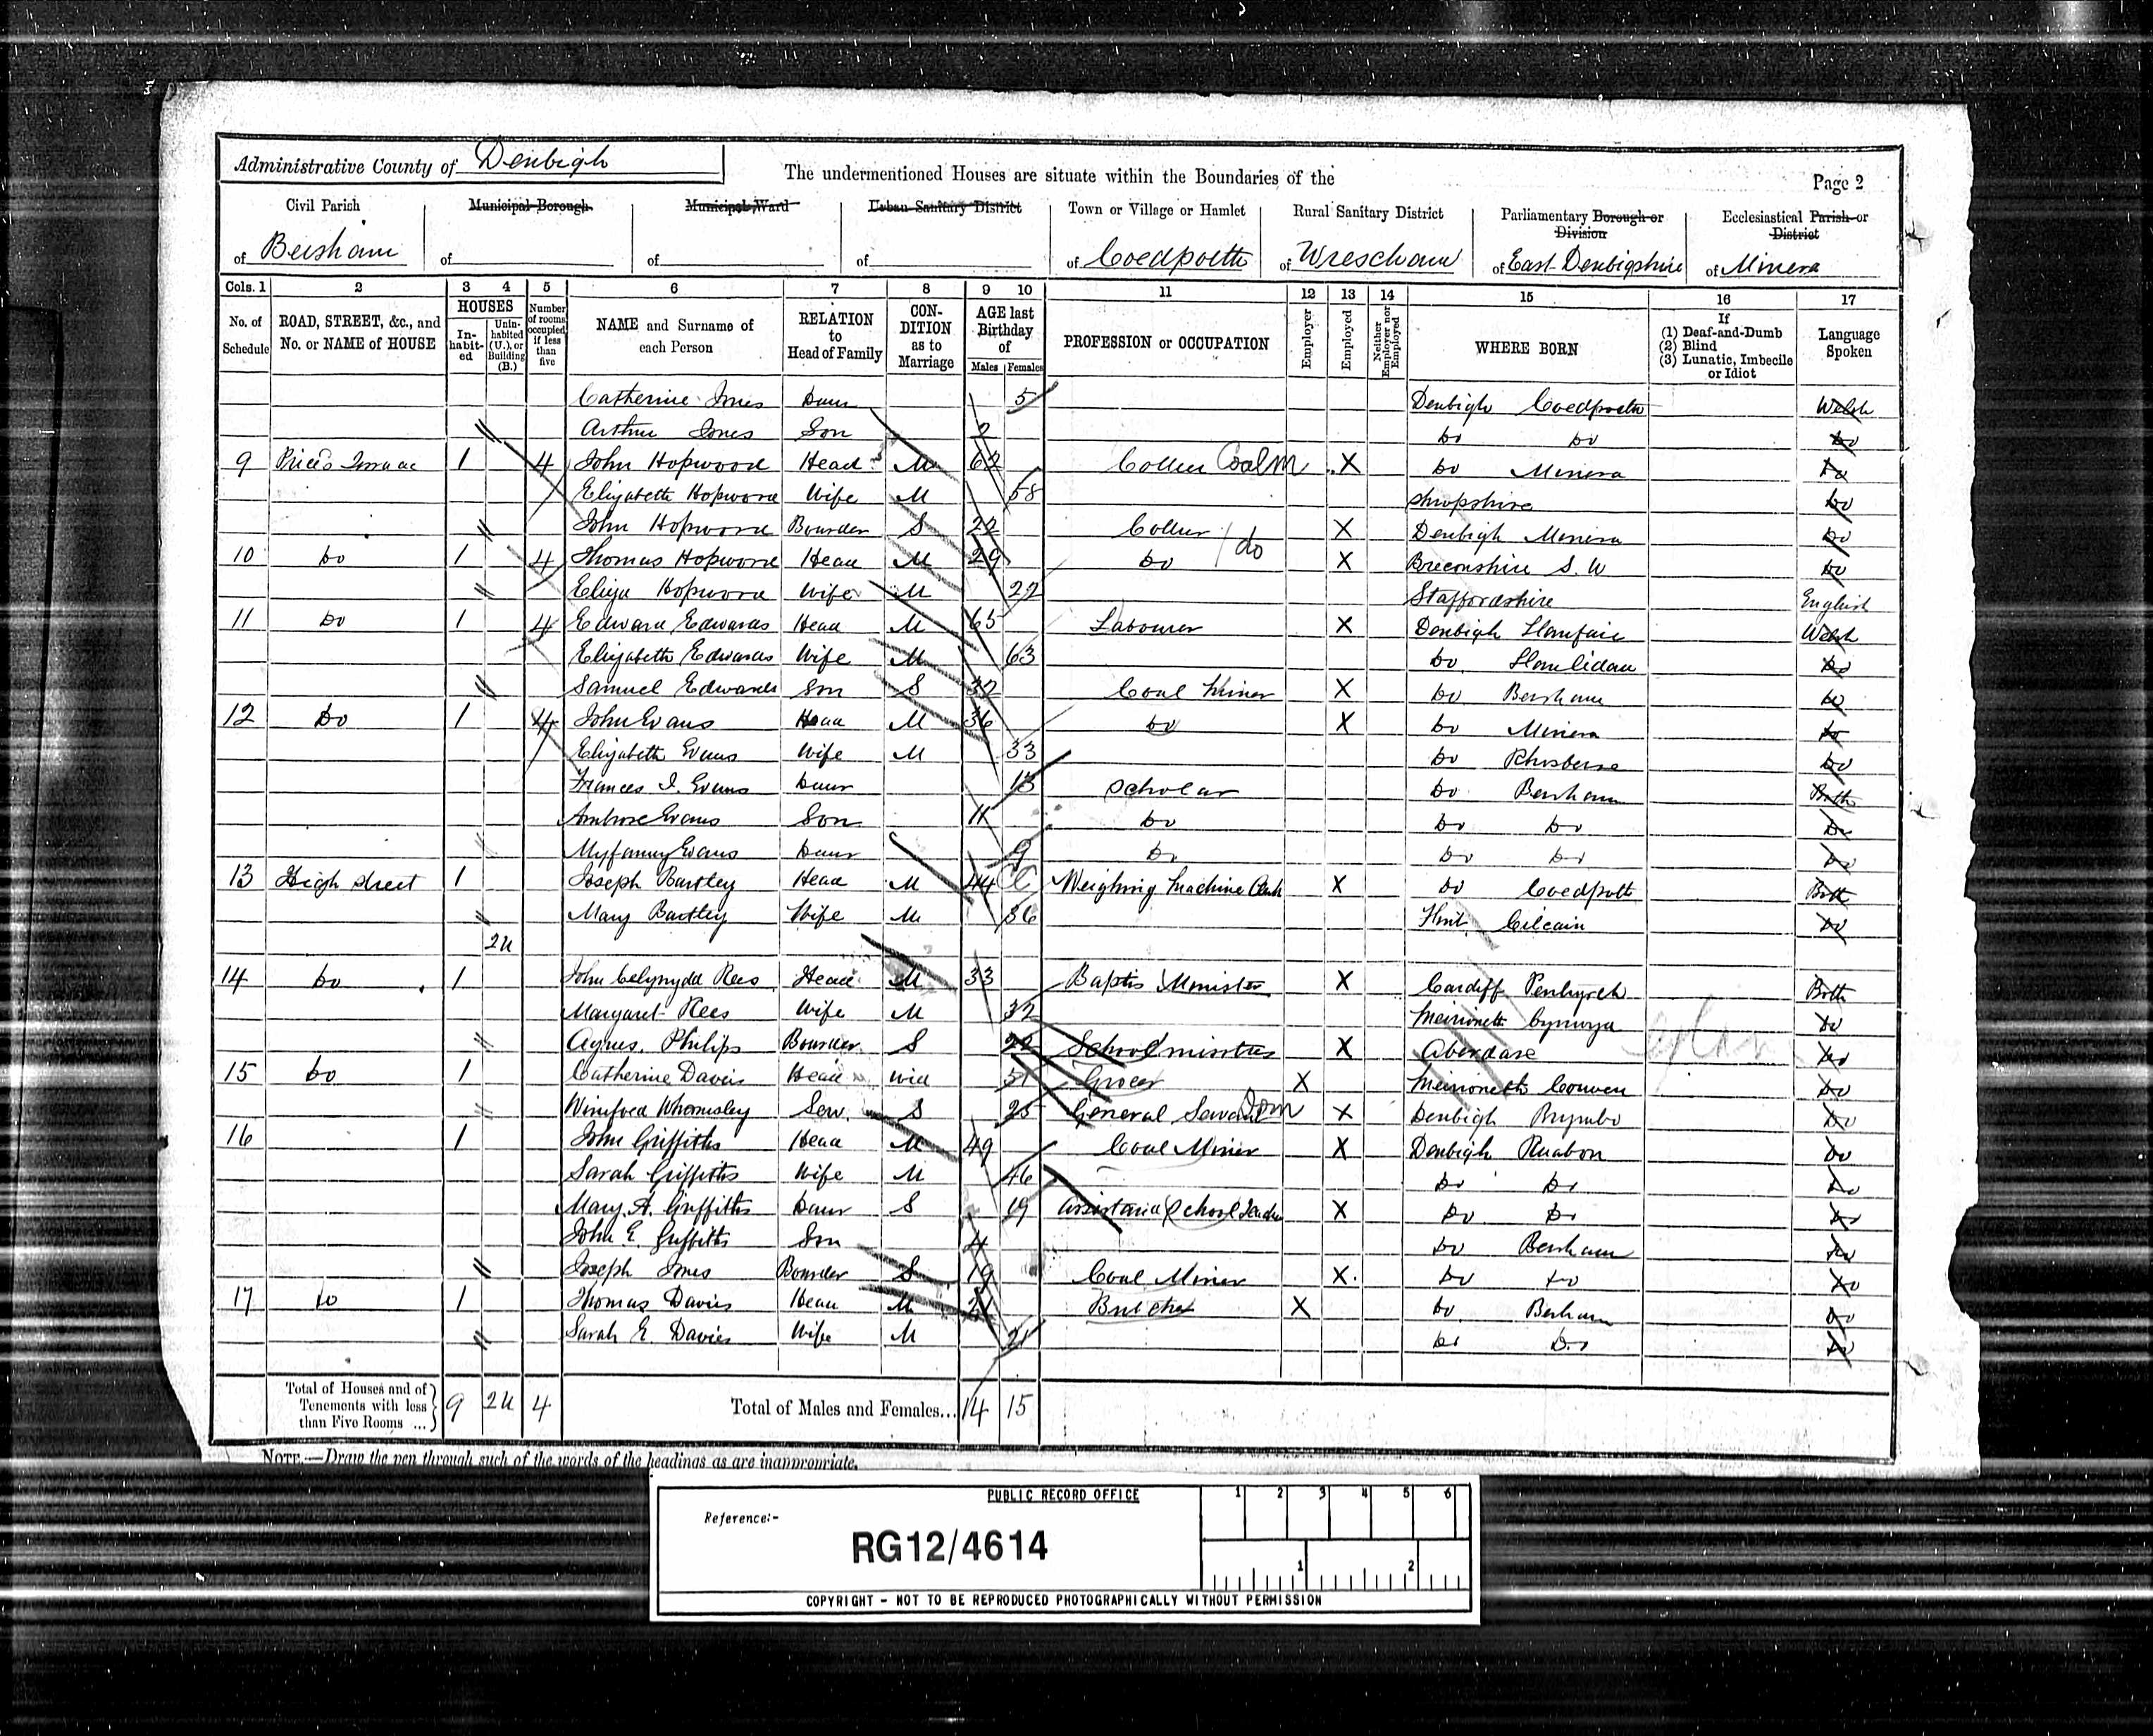 Administrative County of Denbigh
The undermentioned Houses are situate within the Boundaries of the
Page 2
Civil Parish of Bersham
Municipal Borough of
Municipal Ward of
Urban Sanitary District of
Town or Village or Hamlet of Coedpoeth
Rural Sanitary District of Wrexham
Parliamentary Borough or Division of East Denbigshire
Ecclesiastical Parish or District of Minera
Cols. 1 2 3 4 5 6 7 8 9 10 11 12 13 14 15 16 17
No. of Schedule
ROAD, STREET, &c., and No. or NAME of HOUSE
HOUSES
In-habit-ed
Unin-habited (U.), or Building (B.)
Number of rooms occupied if less than five
NAME and Surname of each Person
RELATION to Head of Family
CON-DITION as to Marriage
AGE last Birthday of
Males Females
PROFESSION or OCCUPATION
Employer
Employed
Neither Employer nor Employed
WHERE BORN
If (1) Deaf-and-Dumb (2) Blind (3) Lunatic, Imbecile or Idiot
Language Spoken
Catherine Jones Daur 5 Denbigh Coedpoeth Welsh
Arthur Jones Son 2 Do Do Do
9 Price's Terrace 1 4 John Hopwood Head M 62 Collier Coal M X Do Minera Do
Elizabeth Hopwood Wife M 58 Shropshire Do
John Hopwood Bourder S 22 Collier X Denbigh Minera Do
10 Do 1 4 Thomas Hopwood Head M 29 Do do X Breconshire S. W Do
Eliza Hopwood Wife M 22 Staffordshire English
11 Do 1 4 Edward Edwards Head M 65 Labourer X Denbigh Llanfair Welsh
Elizabeth Edwards Wife M 63 Do Llanlidan Do
Samuel Edwards Son S 32 Coal Miner X Do Bersham Do
12 Do 1 4 John Evans Head M 36 Do X Do Minera Do
Elizabeth Evans Wife M 33 Do Do
Frances J. Evans Daur 13 Scholar Do Bersham Both
Ambrose Evans Son 11 Do Do Do Do
Myfanwy Evans Daur 9 Do Do Do Do
13 High Street 1 Joseph Bartley Head M 44 Weighing Machine Clerk X Do Coedpoth Both
Mary Bartley Wife M 36 Flint Cilcain Do
2U
14 Do 1 John Celynydd Rees Head M 33 Baptis Minister X Cardiff Penhyrch Both
Margaret Rees Wife M 32 Meirioneth Cynwyd Do
Agnes Philips Bourder S 22 School mistres X Aberdare Do
15 Do 1 Catherine Davies Head Wid 51 Grocer X Meirioneth Corwen Do
Winifred Whomsley Serv. S 25 General Servant Dom X Denbigh Brymbo Do
16 1 John Griffiths Head M 49 Coal Miner X Denbigh Ruabon Do
Sarah Griffiths Wife M 46 Do Do Do
Mary. A. Griffiths Daur S 19 School X Do Do Do
John E. Griffiths Son 4 Do Bersham Do
Joseph Jones Bourder S 19 Coal Miner X Do Do Do
17 Do 1 Thomas Davies Head M Butcher X Do Bersham Do
Sarah E. Davies Wife M 21 Do Do Do
Total of Houses and of Tenements with less than Five Rooms ... 9 2U 4
Total of Males and Females... 14 15
NOTE.—Draw the pen through such of the words of the headings as are inappropriate.
PUBLIC RECORD OFFICE
1 2 3 4 5 6
Reference:-
RG12/4614
1 2
COPYRIGHT - NOT TO BE REPRODUCED PHOTOGRAPHICALLY WITHOUT PERMISSION